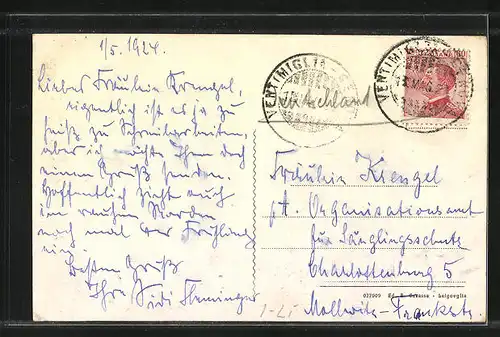 1/5. 1924.
Liebes Fräulein Krengel,
eigentlich ist es ja zu
heiß zu Schreibarbeiten,
aber ich möchte Ihnen doch
einen Gruß senden.
Hoffentlich zieht auch
im rauhen Norden
noch mal der Frühling
ein.
Besten Gruß
Ihre
VENTIMIGLIA
Deutschland
VENTIMIGLIA
Fräulein Krengel
Organisationsamt
für Säuglingsschutz
Charlottenburg 5
Mollwitz-Frankstr.
037009 - Laigueglia